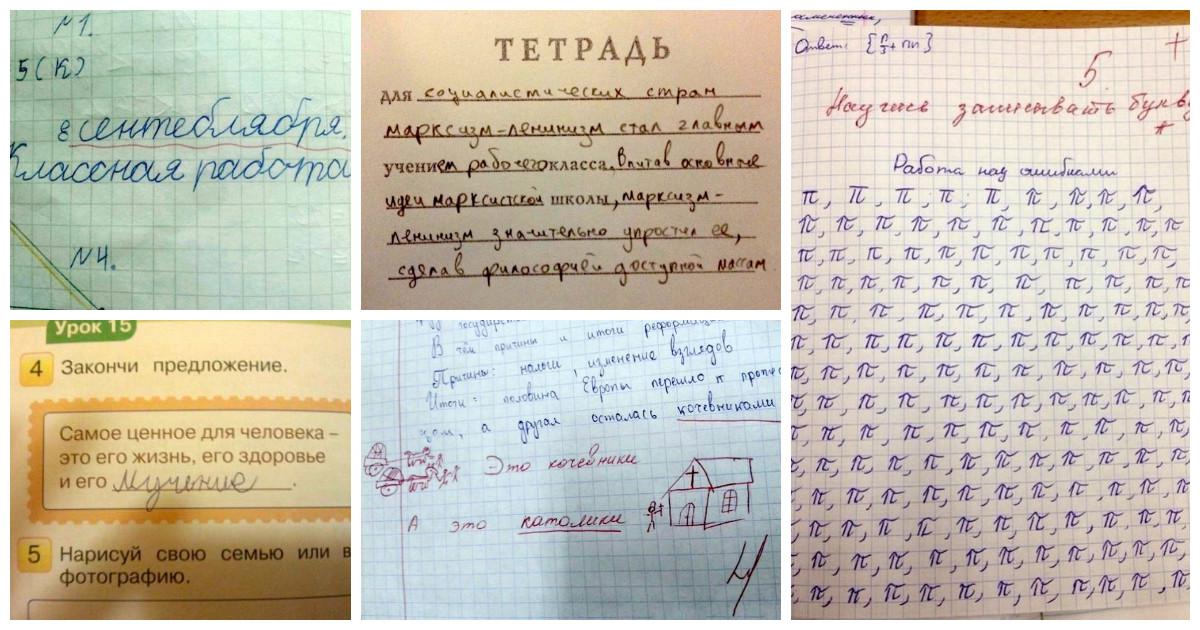 N1.
5(К)
8 сентеблября.
Классная работа
N4.
ТЕТРАДЬ
для социалистических стран
марксизм-ленинизм стал главным
учением рабочего класса, впитав основные
идеи марксистской школы, марксизм-
ленинизм значительно упростил ее,
сделав философией доступной массам
Ответ: {π/3 + πn}
5
+
Научись записывать букву
π
Работа над ошибками
π, π, π, π, π, π, π, π, π,
π, π, π, π, π, π, π, π, π, π, π
π, π, π, π, π, π, π, π, π, π,
π, π, π, π, π, π, π, π, π, π,
π, π, π, π, π, π, π, π, π, π
π, π, π, π, π, π, π, π, π, π,
π, π, π, π, π, π, π, π, π, π
π, π, π, π, π, π, π, π, π, π
π, π, π, π, π, π, π, π, π, π
π, π, π, π, π, π, π, π, π, π
π, π, π, π, π, π, π, π, π, π
π, π, π, π, π, π, π, π, π, π
π, π, π, π, π, π, π, π, π, π
π, π, π, π, π, π, π, π, π, π
Урок 15
4 Закончи предложение.
Самое ценное для человека –
это его жизнь, его здоровье
и его мучение.
5 Нарисуй свою семью или в
фотографию.
В чём причины и итоги реформации
Причины: налоги, изменение взглядов
Итоги: половина Европы перешло к
а другая осталась кочевниками
Это кочевники
А это католики
4